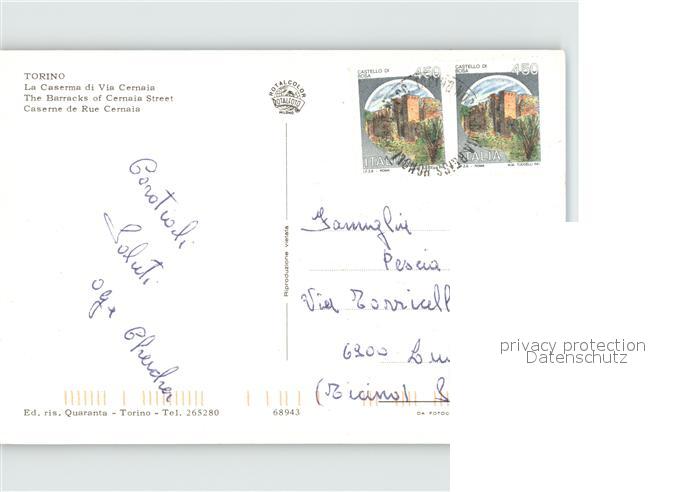 TORINO
La Caserma di Via Cernaia
The Barracks of Cernaia Street
Caserne de Rue Cernaia
ROTALCOLOR
ROTALFOTO
MILANO
CASTELLO DI
BOSA
450
ITALIA
I.P.Z.S. - ROMA
CASTELLO DI
BOSA
450
ITALIA
I.P.Z.S. - ROMA
Saluti
Riproduzione vietata
Famiglia
Pescia
Via Torricell
6900 Lu
(Ticino) S
privacy protection
Datenschutz
Ed. ris. Quaranta - Torino - Tel. 265280
68943
DA FOTOC